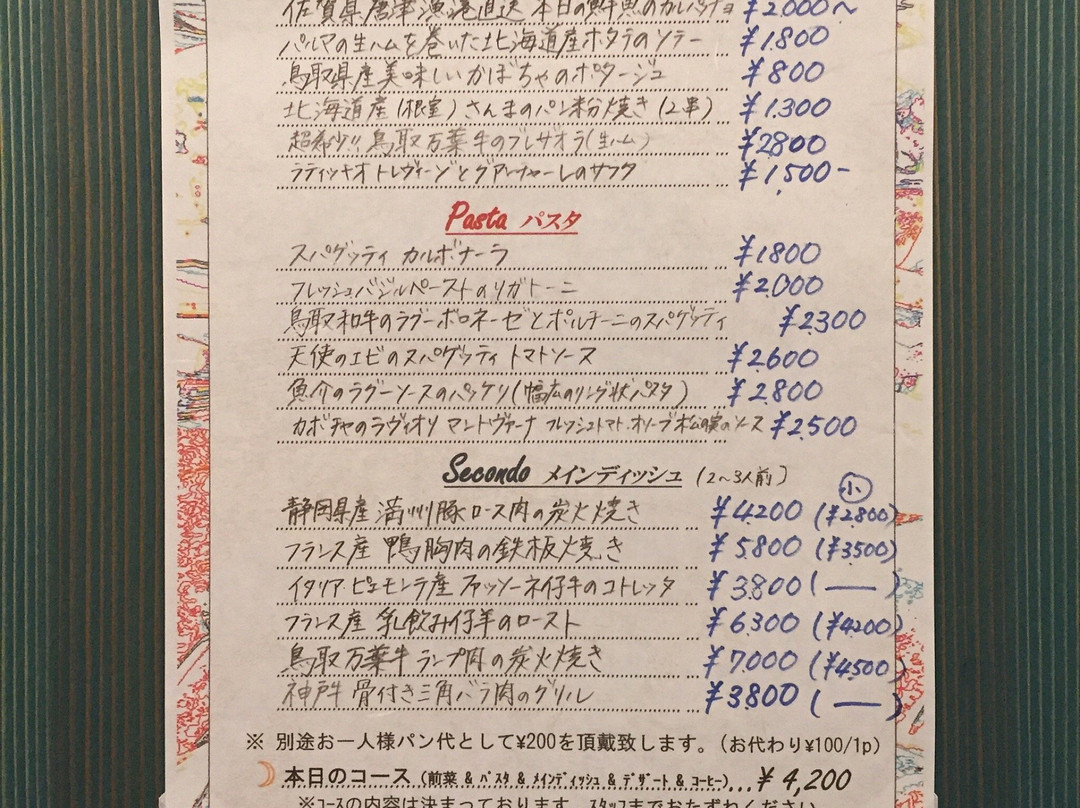 佐賀県唐津漁港直送 本日の鮮魚のカルパッチョ ¥2000~
パルマの生ハムを巻いた北海道産ホタテのソテー ¥1800
鳥取県産美味しいかぼちゃのポタージュ ¥800
北海道産(根室)さんまのパン粉焼き(2串) ¥1300
超希少!! 鳥取万葉牛のブレザオラ(生ハム) ¥2800
ラディッキオトレヴィーゾとグアンチャーレのサラダ ¥1500-
Pasta パスタ
スパゲッティ カルボナーラ ¥1800
フレッシュバジルペーストのリガトーニ ¥2000
鳥取和牛のラグーボロネーゼとポルチーニのスパゲッティ ¥2300
天使のエビのスパゲッティ トマトソース ¥2600
魚介のラグーソースのパッケリ(幅広のリング状パスタ) ¥2800
カボチャのラヴィオリ マントヴァーナ フレッシュトマト・オリーブ・松の実のソース ¥2500
Secondo メインディッシュ (2~3人前) 小
静岡県産 満州豚ロース肉の炭火焼き ¥4200 (¥2800)
フランス産 鴨胸肉の鉄板焼き ¥5800 (¥3500)
イタリア・ピエモンテ産 ファッソーネ仔牛のコトレッタ ¥3800 (—)
フランス産 乳飲み仔羊のロースト ¥6300 (¥4200)
鳥取万葉牛 ランプ肉の炭火焼き ¥7000 (¥4500)
神戸牛 骨付き三角バラ肉のグリル ¥3800 (—)
※ 別途お一人様パン代として¥200を頂戴致します。(お代わり¥100/1p)
本日のコース (前菜 & パスタ & メインディッシュ & デザート & コーヒー)...¥4,200
※コースの内容は決まっております。スタッフまでおたずねください